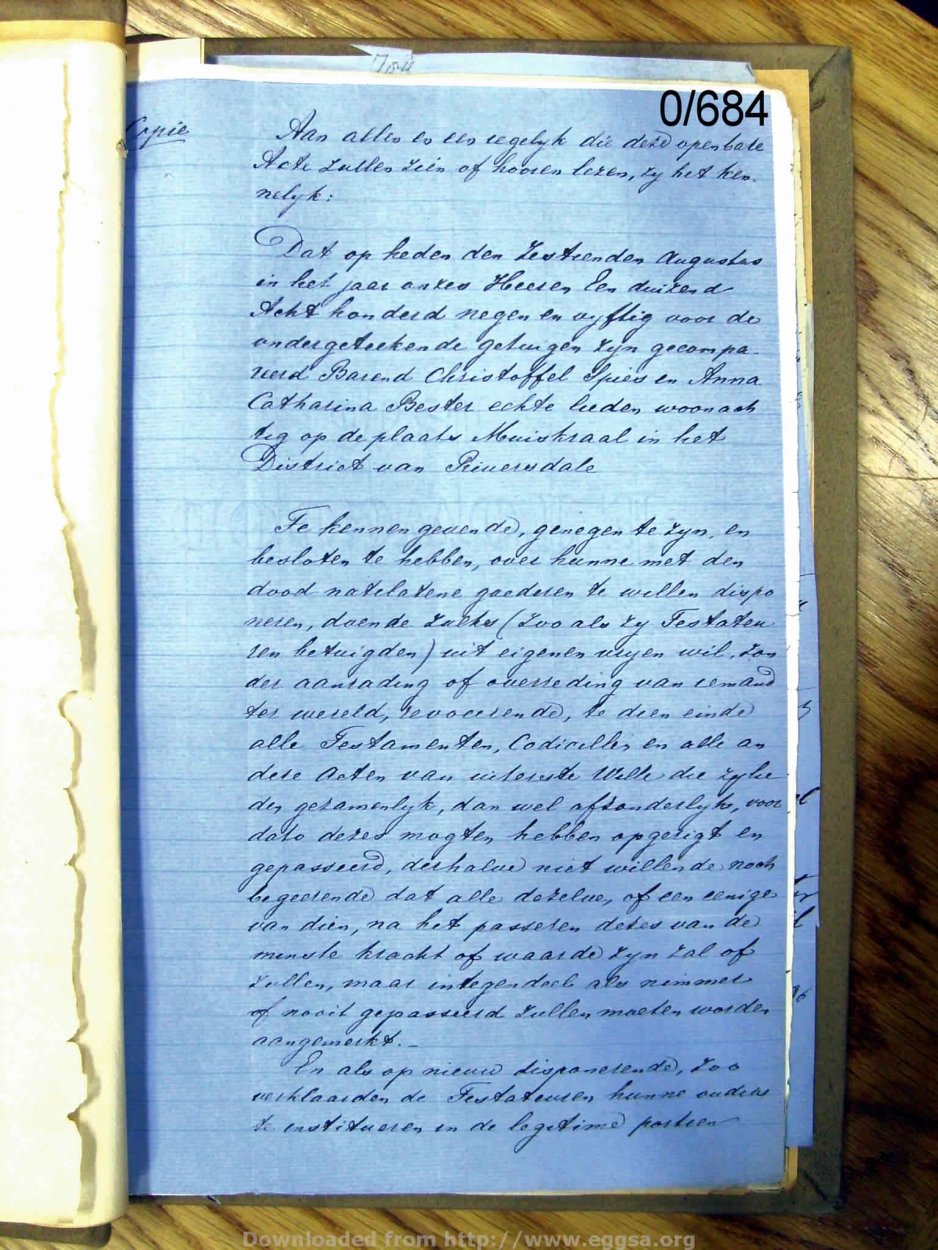 704
0/684
Copie
Aan allen en een iegelyk die deze openbare
Acte zullen zien of hooren lezen, zy het ken-
nelyk:
Dat op heden den Zestienden Augustus
in het jaar onzes Heeren Een duizend
Acht honderd negen en vyftig voor de
ondergeteekende getuigen zyn gecompa-
reerd Barend Christoffel Spies en Anna
Catharina Bester echte lieden woonach
tig op de plaats Muiskraal in het
District van Riversdale
Te kennen gevende, genegen te zyn, en
besloten te hebben, over hunne met den
dood natelatene goederen te willen dispo
neren, doende zulks (Zoo als zy Testateu
ren betuigden) uit eigenen vryen wil, zon
der aanrading of overreding van iemand
ter wereld, revoceerende, te dien einde
alle Testamenten, Codicillen en alle an
dere Acten van uiterste Wille die zylie
den gezamenlyk, dan wel afzonderlyk, voor
dato dezes mogten hebben opgerigt en
gepasseerd, deshalve niet willende noch
begeerende dat alle dezelve, of een eenige
van dien, na het passeren dezes van de
minste kracht of waarde zyn zal of
zullen, maar integendeel als nimmer
of nooit gepasseerd zullen moeten worden
aangemerkt. —
En als op nieuw disponerende, zoo
verklaarden de Testateuren hunne ouders
te institueren in de legitime portien
Downloaded from http://www.eggsa.org